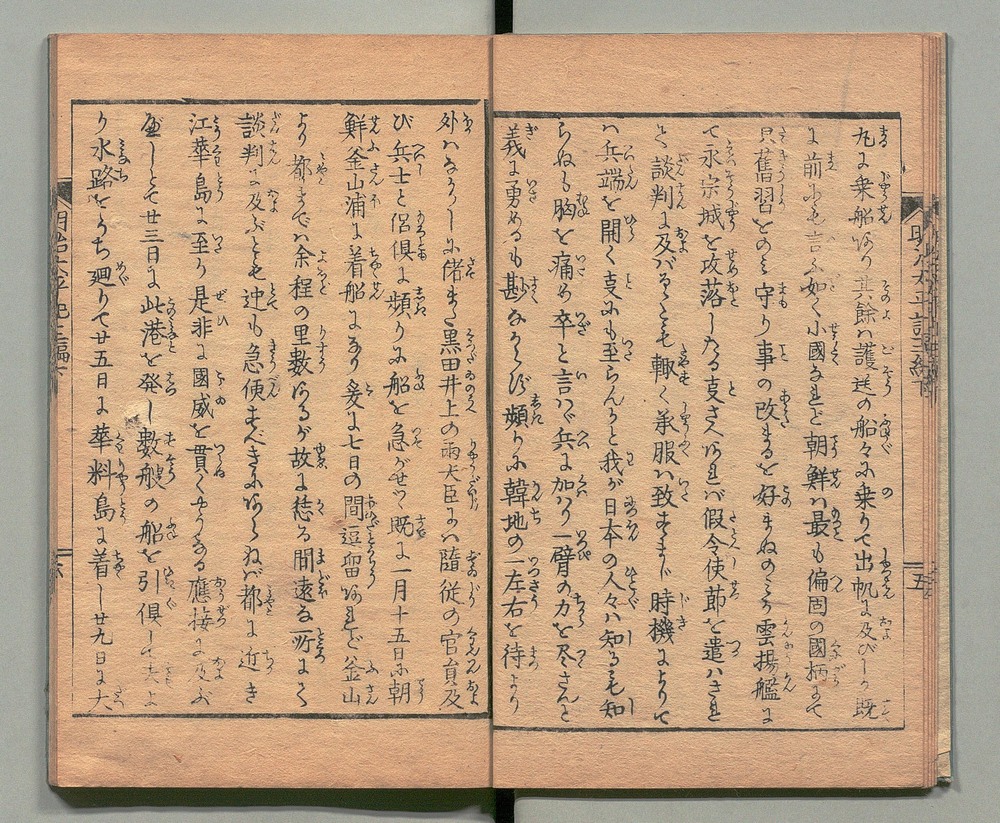 丸に乗船あり其餘ハ護送の船々に乗りて出帆に及びしが既
に前にも言ふ如く小國なれど朝鮮ハ最も偏固の國柄にて
只舊習をのミ守り事の改まるを好まぬのミか雲揚艦に
て永宗城を攻落したる事さへあれバ假令使節を遣ハさるれ
ど談判に及バるゝとも輙く承服ハ致すまじ時機によりて
ハ兵端を開く事にも至らんかと我が日本の人々ハ知るも知
らぬも胸を痛め卒と言ハゞ兵に加ハり一臂の力を尽さんと
義に勇めるも尠なからず頻りに韓地の一左右を待より
外ハなかりしに偖また黒田井上の両大臣にハ隨従の官員及
び兵士と侶倶に頻りに船を急がせつ既に一月十五日に朝
鮮釜山浦に着船になり爰に七日の間逗留あれど釜山
より都までハ余程の里数あるが故に斯る間遠な所にて
談判に及ぶとも迚も急便すべきにあらねバ都に近き
江華島に至り是非に國威を貫くやうなる應接に及ぶ
べしとて廿三日に此港を発し數艘の船を引倶して夫よ
り水路をうち廻りて廿五日に華料島に着し廿九日に大
明治太平記三編下
五
明治太平記三編下
六